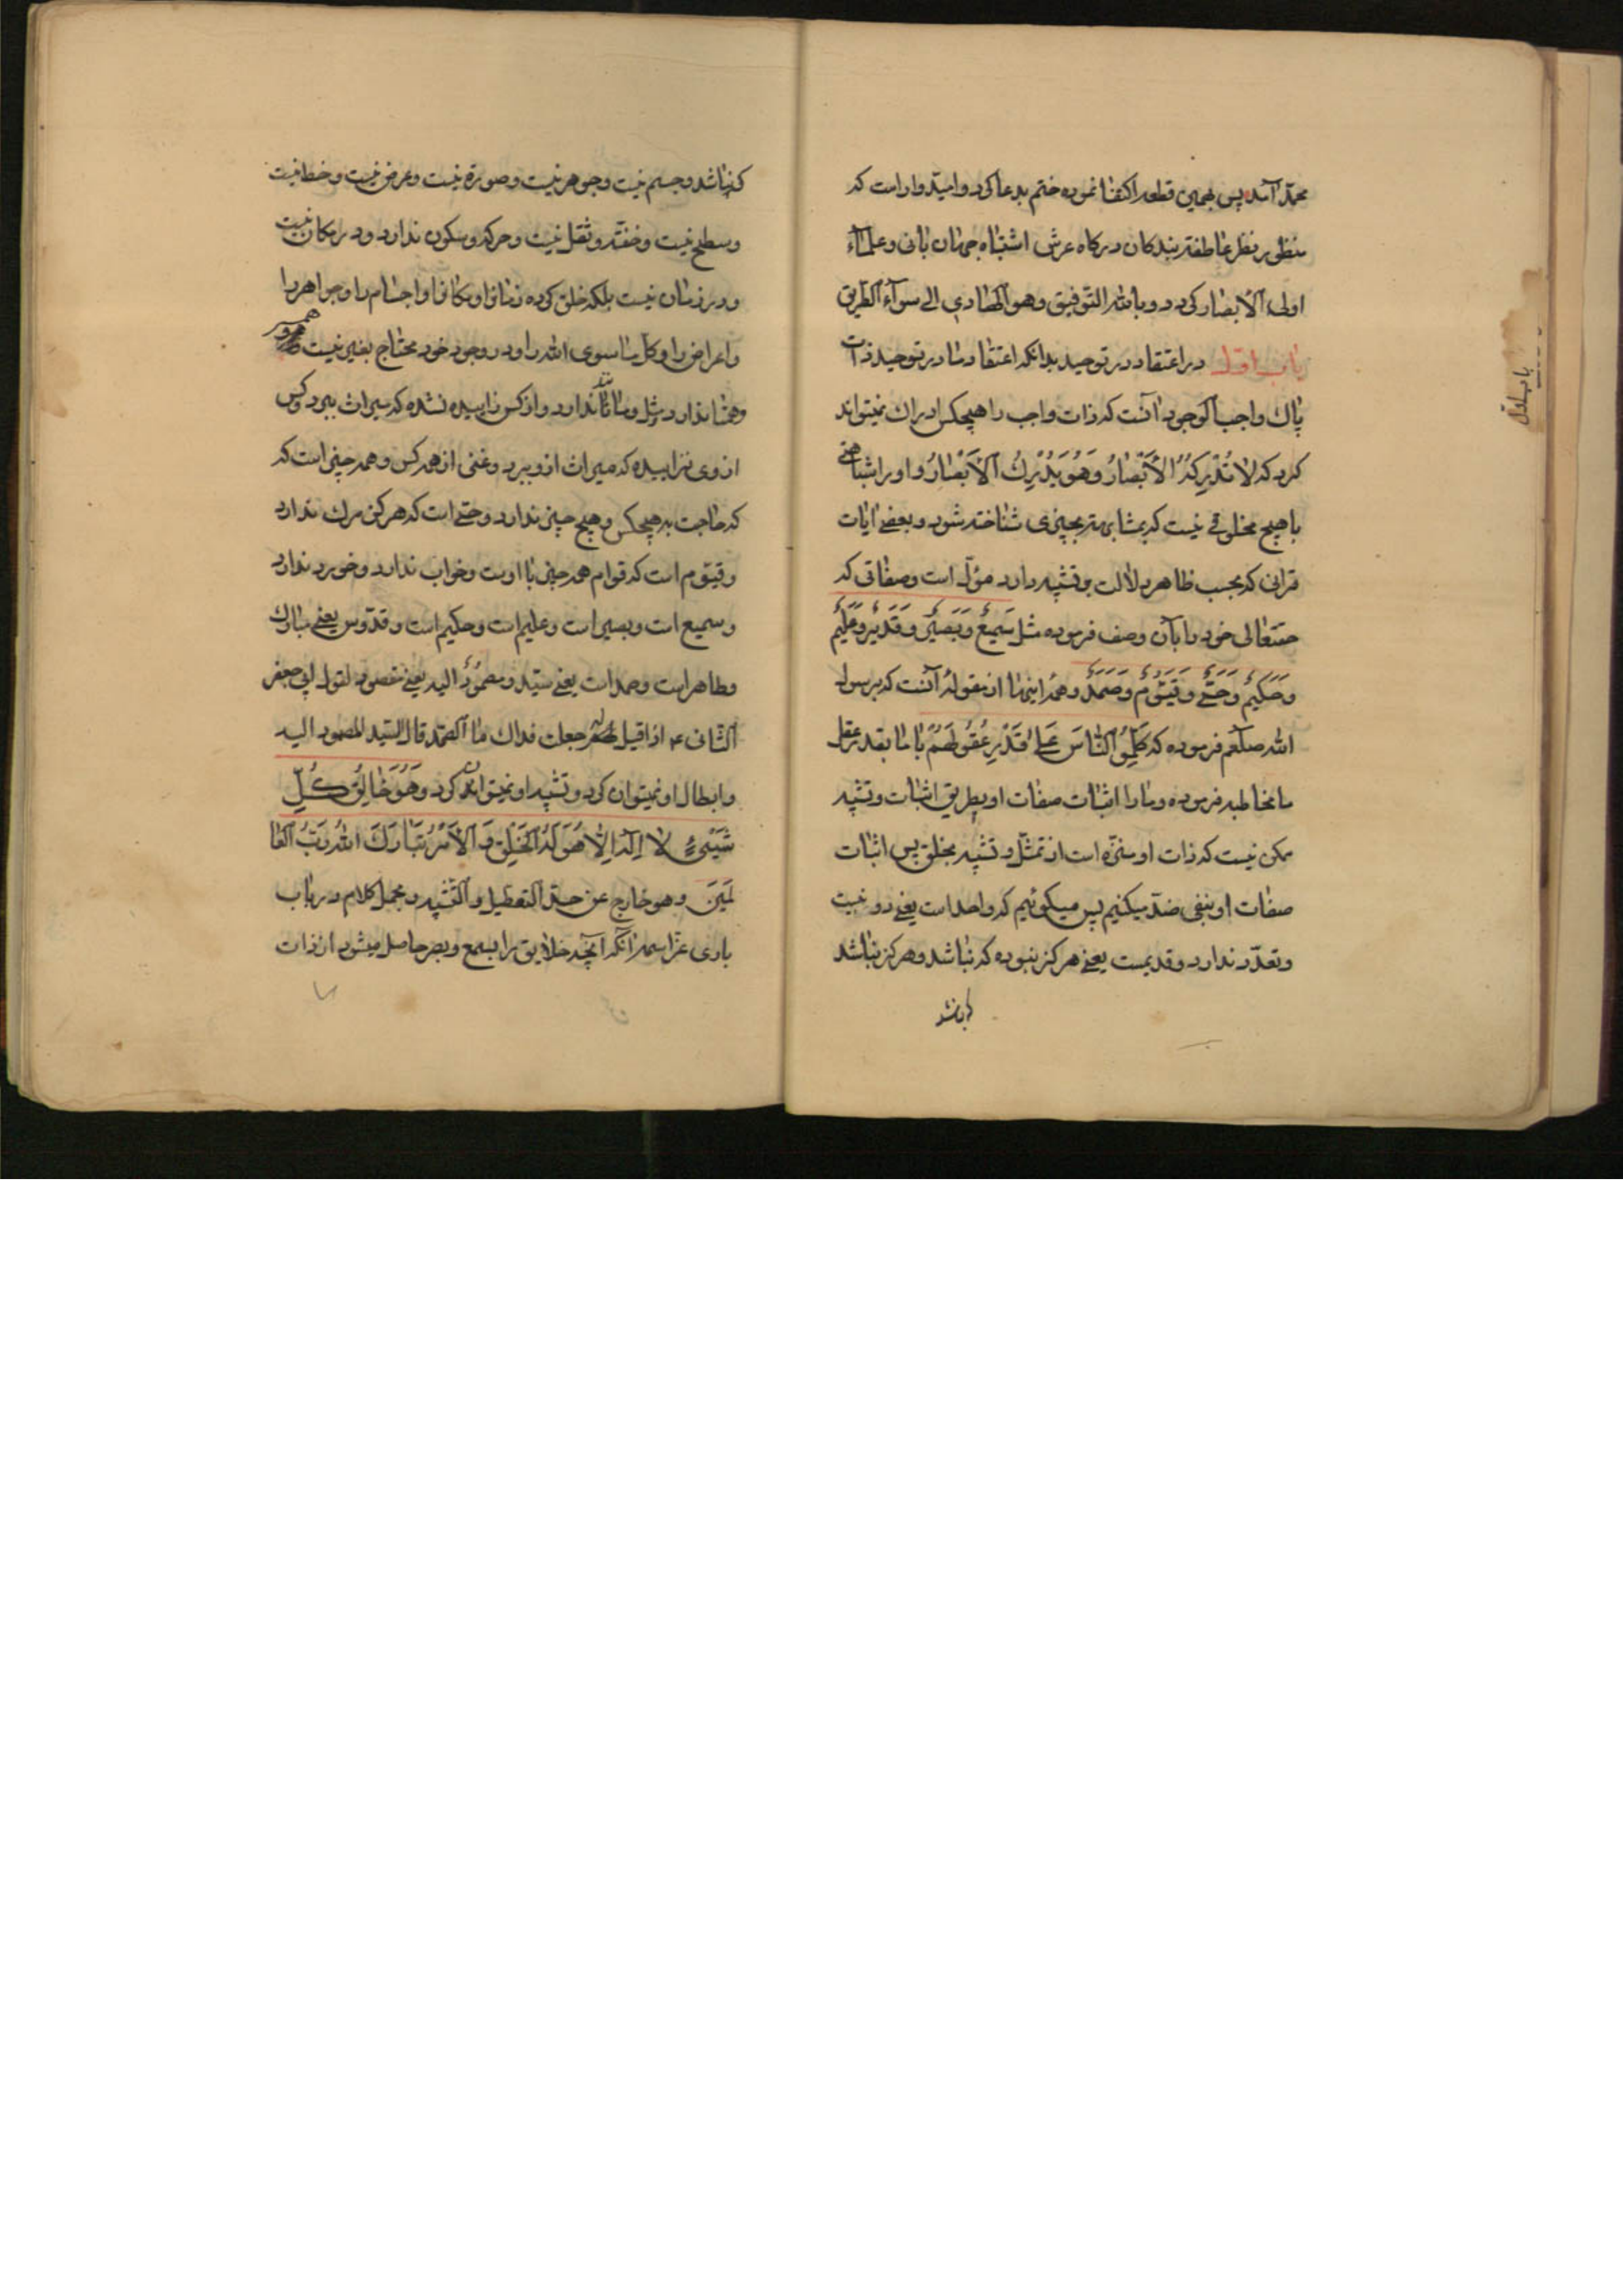 محمّد آمد پس بهمین قطعه اکتفا نموده ختم بدعا کرد و امیّدوار است که
منظور نظر عاطفة بندکان درکاه عرش اشتباه جهان بانی و علمآء
اولی الأبصار کردد و بالله التوفیق و هو الهادي الی سوآء الطّریق
باب اوّل در اعتقاد در توحید بدانکه اعتقاد ما در توحید ذات
پاك واجب الوجود آنست که ذات واجب را هیچکس ادراك نمیتواند
کرد که لا تُدْرِکُهُ الأَبْصارُ وَهُوَ یُدْرِكُ الأَبْصارُ و او را شباهتی
با هیچ مخلوقی نیست که بمشابهتِ بچیزی شناخته شود و بعضی آیات
قرآنی که بحسب ظاهر دلالت بر تشبیه دارد مؤل است و صفاتی که
حقتعالی خود را بآن وصف فرموده مثل سَمیعٌ وَبَصیرٌ وقَدیرٌ وعَلیمٌ
وَحَکیمٌ وَحَیٌّ وقَیّومٌ وصَمَدٌ و همه اینها از مقولهٔ آنست که برسول
الله صلعم فرموده که کَلِّمُوا النّاسَ عَلی قَدْرِ عُقُولِهِمْ با ما بقدر عقل
ما مخاطبه فرموده و ما را اثبات صفات او بطریق اثبات و تشبیه
ممکن نیست که ذات او منزّه است از تمثّل و تشبیه بخلق پس اثبات
صفات او بنفی ضدّ میکنیم پس میکوئیم که واحد است یعنی دو نیست
و تعدّد ندارد و قدیمست یعنی هرکز نبوده که نباشد و هرکز نباشد
که نباشد
باب اول
که نباشد و جسم نیست و جوهر نیست و صورة نیست و عرض نیست و خط نیست
و سطح نیست و خفّة و ثقل نیست و حرکه و سکون ندارد و در مکان نیست
و در زمان نیست بلکه خلق کرده زمان و مکان و اجسام را و جواهر را
و اعراض را و کل ما سوی الله را و در وجود خود محتاج بغیر نیست
و همتا ندارد و مثل و مانند ندارد و از کس زاییده نشده که میراث ببرد و کس
از وی نزاییده که میراث ازو ببرد و غنی از همه کس و همه چیز است که
که حاجت به هیچکس و هیچ چیز ندارد و حیّ است که هرکز مرك ندارد
و قیّوم است که قوام همه چیز با اوست و خواب ندارد و خورد ندارد
و سمیع است و بصیر است و علیم است و حکیم است و قدّوس یعنی مبارك
و طاهر است و صمد است یعنی سیّد و مصمُودٌ الیه یعنی مقصود لقول ابی جعفر
الثّانی ع اذا قیل له جعلت فداك ما الصّمد قال السّید المصمود الیه
و ابطال او نمیتوان کرد و تشبیه او نمیتوان کرد وَهُوَ خالِقُ کُلِّ
شَیْئٍ لا اِلهَ اِلّا هُوَ لَهُ الخَلْقُ وَ الأَمْرُ تَبارَكَ اللهُ رَبُّ العا
لَمینَ و هو خارج عن حدّ التعطیل و التّشبیه و مجمل کلام در باب
باری عزّ اسمه آنکه آنچه خلایق را بسمع و بصر حاصل میشود از ذات